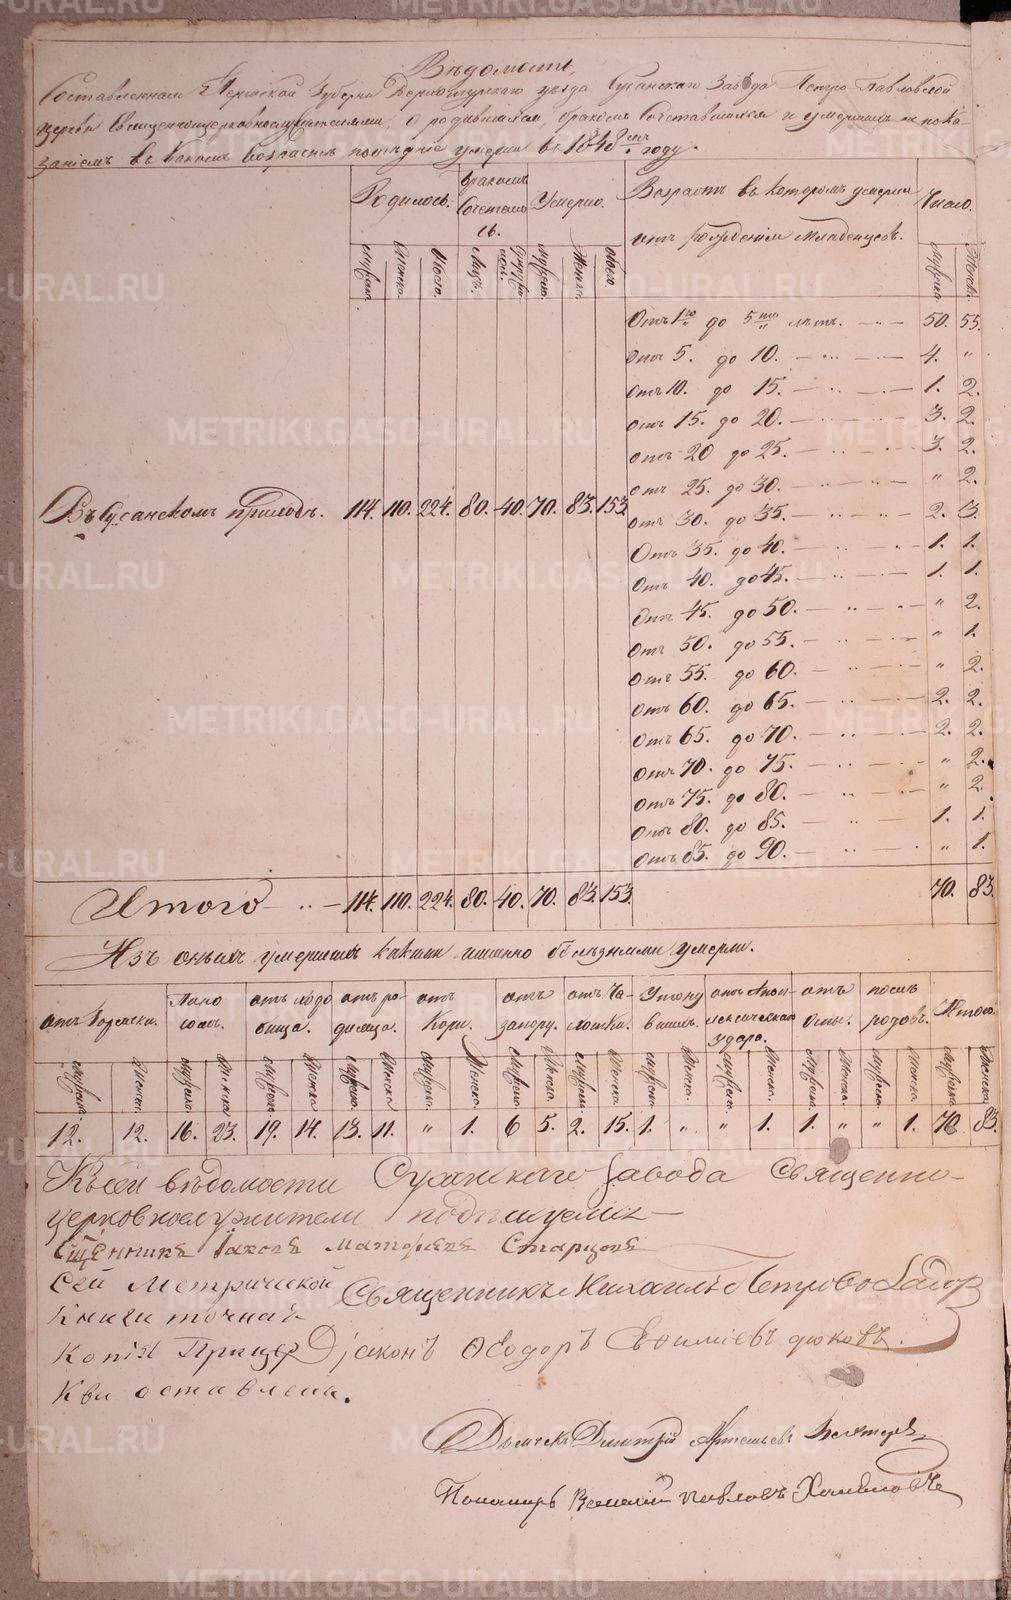 Вѣдомость,
Составленная Пермской Губерніи Верхотурскаго уѣзда Сусанскаго Завода Петро-Павловской
церкви Священноцерковнослужителями, о родившихся, бракомъ сочетавшихся и умершихъ съ пока-
заніемъ въ какомъ возрастѣ послѣдніе умерли въ 1848 году.
Родилось. Бракомъ сочеталось. Умерло. Возрастъ въ которомъ умерли отъ рожденія младенцевъ. Число.
мужска. Женска. Обоего. Лицъ. мужска. Женска. Обоего. мужска. Женска.
Отъ 1го до 5ти лѣтъ. 50. 55.
Отъ 5. до 10. 4. "
Отъ 10. до 15. 1. 2.
Отъ 15. до 20. 3. 2.
Отъ 20 до 25. 3. 2.
Отъ 25. до 30. " 2.
Въ Сусанскомъ приходѣ. 114. 110. 224. 80. 40. 70. 83. 153
Отъ 30. до 35. 2. 3.
Отъ 35. до 40. 1. 1.
Отъ 40. до 45. 1. 1.
Отъ 45. до 50. " 2.
Отъ 50. до 55. " 1.
Отъ 55. до 60. " 2.
Отъ 60. до 65. 2. 2.
Отъ 65. до 70. 2. 2.
Отъ 70. до 75. " 2.
Отъ 75. до 80. " 2.
Отъ 80. до 85. 1. 1.
Отъ 85. до 90. " 1.
Итого 114. 110. 224. 80. 40. 70. 83. 153. 70. 83.
Изъ оныхъ умершихъ какими именно болѣзнями умерли.
отъ Горячки. Поносомъ. отъ родимца. отъ Кори. отъ запору. отъ Чахотки. Утонувшихъ. отъ Апоплексическаго удара. отъ Оспы. послѣ родовъ. Итого.
мужска. Женска. мужска. Женска. мужска. Женска. мужска. Женска. мужска. Женска. мужска. Женска. мужска. Женска. мужска. Женска. мужска. Женска. мужска. Женска. мужска. Женска. мужска. Женска.
12. 12. 16. 23. 19. 14. 13. 11. " 1. 6 5. 2. 15. 1. " " 1. 1. " " 1. 70 83.
Къ сей вѣдомости Сусанскаго Завода Священно-
церковнослужители подписуемся
Священникъ Іаковъ Матѳеевъ Старцовъ
Сей Метрической Священникъ Михаилъ Петровъ
Книги точная
Копія Діаконъ Ѳеодоръ Евѳиміевъ Дюковъ.
оставлена.
Дьячекъ Димитрій Артемьевъ
Пономарь Василій Павловъ
METRIKI.GASO-URAL.RU